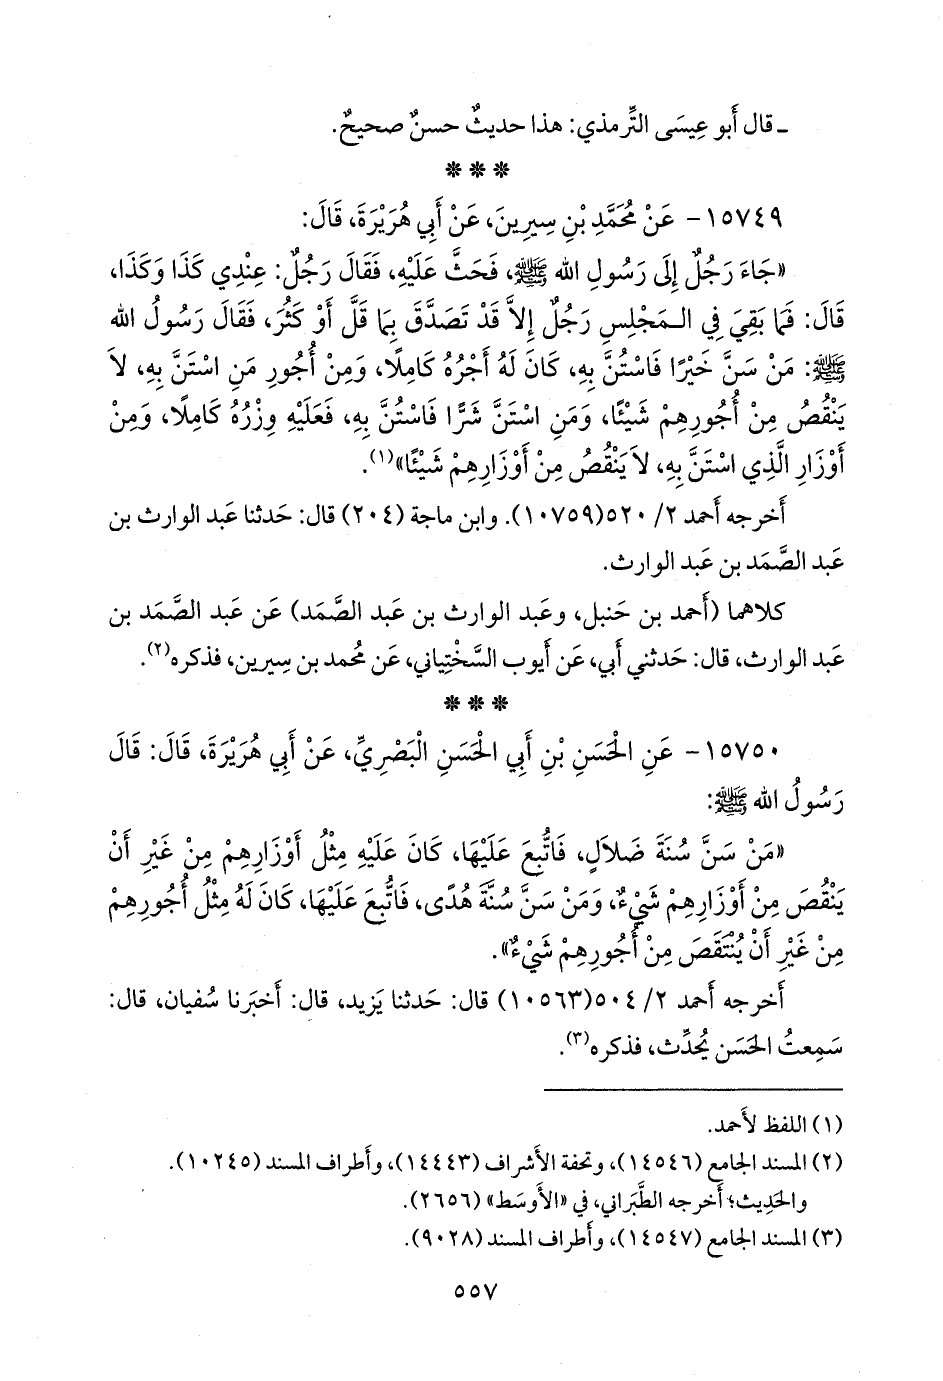 ـ قال أَبو عِيسَى التِّرمذي: هذا حديثٌ حسنٌ صحيحٌ.
* * *
١٥٧٤٩- عَنْ مُحَمَّدِ بْنِ سِيرِينَ، عَنْ أَبِي هُرَيْرَةَ، قَالَ:
«جَاءَ رَجُلٌ إِلَى رَسُولِ الله ﷺ، فَحَثَّ عَلَيْهِ، فَقَالَ رَجُلٌ: عِنْدِي كَذَا وَكَذَا،
قَالَ: فَمَا بَقِيَ فِي الـمَجْلِسِ رَجُلٌ إِلاَّ قَدْ تَصَدَّقَ بِمَا قَلَّ أَوْ كَثُرَ، فَقَالَ رَسُولُ الله
ﷺ: مَنْ سَنَّ خَيْرًا فَاسْتُنَّ بِهِ، كَانَ لَهُ أَجْرُهُ كَامِلًا، وَمِنْ أُجُورِ مَنِ اسْتَنَّ بِهِ، لاَ
يَنْقُصُ مِنْ أُجُورِهِمْ شَيْئًا، وَمَنِ اسْتَنَّ شَرًّا فَاسْتُنَّ بِهِ، فَعَلَيْهِ وِزْرُهُ كَامِلًا، وَمِنْ
أَوْزَارِ الَّذِي اسْتَنَّ بِهِ، لاَ يَنْقُصُ مِنْ أَوْزَارِهِمْ شَيْئًا»(١).
أَخرجه أَحمد ٢/ ٥٢٠(١٠٧٥٩). وابن ماجة (٢٠٤) قال: حَدثنا عَبد الوارث بن
عَبد الصَّمَد بن عَبد الوارث.
كلاهما (أَحمد بن حَنبل، وعَبد الوارث بن عَبد الصَّمَد) عَن عَبد الصَّمَد بن
عَبد الوارث، قال: حَدثني أَبي، عَن أَيوب السَّخْتِياني، عَن مُحمد بن سِيرين، فذكره(٢).
* * *
١٥٧٥٠- عَنِ الْحَسَنِ بْنِ أَبِي الْحَسَنِ الْبَصْرِيِّ، عَنْ أَبِي هُرَيْرَةَ، قَالَ: قَالَ
رَسُولُ الله ﷺ:
«مَنْ سَنَّ سُنَةَ ضَلاَلٍ، فَاتُّبِعَ عَلَيْهَا، كَانَ عَلَيْهِ مِثْلُ أَوْزَارِهِمْ مِنْ غَيْرِ أَنْ
يَنْقُصَ مِنْ أَوْزَارِهِمْ شَيْءٌ، وَمَنْ سَنَّ سُنَّةَ هُدًى، فَاتُّبِعَ عَلَيْهَا، كَانَ لَهُ مِثْلُ أُجُورِهِمْ
مِنْ غَيْرِ أَنْ يُنْتَقَصَ مِنْ أُجُورِهِمْ شَيْءٌ».
أَخرجه أَحمد ٢/ ٥٠٤(١٠٥٦٣) قال: حَدثنا يَزيد، قال: أَخبَرنا سُفيان، قال:
سَمِعتُ الحَسَن يُحدِّث، فذكره(٣).
(١) اللفظ لأَحمد.
(٢) المسند الجامع (١٤٥٤٦)، وتحفة الأشراف (١٤٤٤٣)، وأَطراف المسند (١٠٢٤٥).
والحَدِيث؛ أَخرجه الطَّبَراني، في «الأَوسَط» (٢٦٥٦).
(٣) المسند الجامع (١٤٥٤٧)، وأَطراف المسند (٩٠٢٨).
٥٥٧